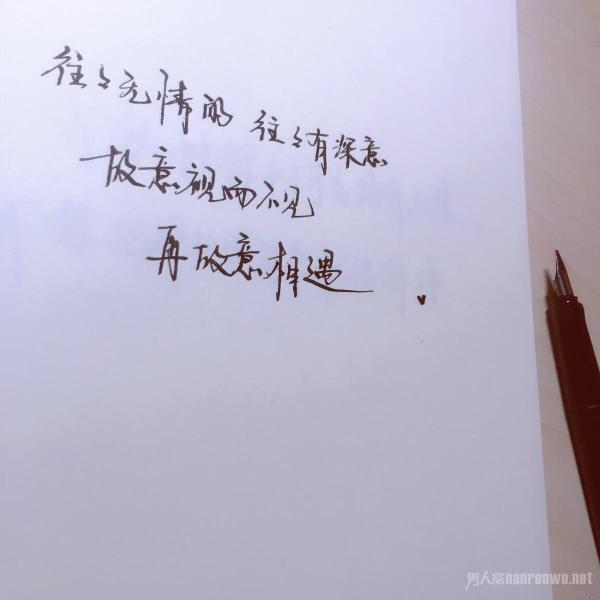 往々无情的 往々有深意
故意视而不见
再故意相遇
男人窝nanrenwo.net